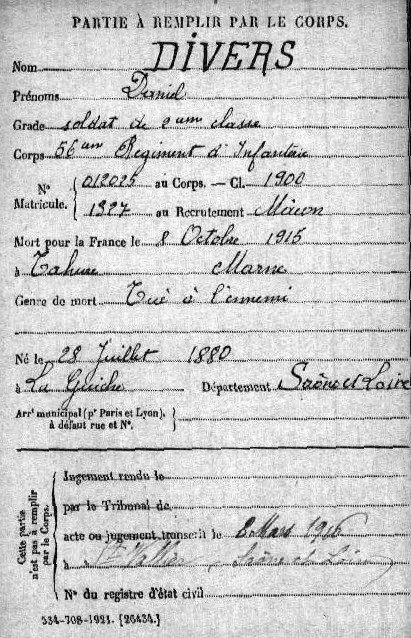 PARTIE À REMPLIR PAR LE CORPS.
Nom DIVERS
Prénoms Daniel
Grade soldat de 2ème classe
Corps 56ème Régiment d'Infanterie
N° Matricule. 012025 au Corps. — Cl. 1900
1327 au Recrutement Mâcon
Mort pour la France le 8 Octobre 1915
à Tahure Marne
Genre de mort Tué à l'ennemi
Né le 28 Juillet 1880
à La Guiche Département Saône et Loire
Arrt municipal (pr Paris et Lyon),
à défaut rue et N°.
Cette partie n'est pas à remplir par le Corps.
Jugement rendu le
par le Tribunal de
acte ou jugement transcrit le 8 Mars 1916
à St Vallier Saône et Loire
N° du registre d'état civil
534-708-1921. [26434.]